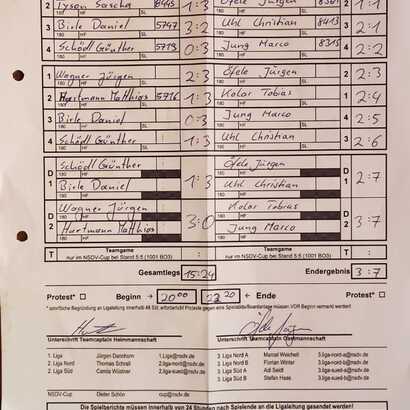 2 Tyson Sascha 8445 Öfele Jürgen 1:1
180 HF SL 180 HF SL
3 Birle Daniel 5747 3:2 Uhl Christian 8413 2:1
180 HF SL 180 HF SL
4 Schödl Günther 5719 0:3 Jung Marco 8315 2:2
180 HF SL 180 HF SL
1 Wagner Jürgen 2:3 Öfele Jürgen 2 2:3
180 HF SL 180 HF SL
2 Hartmann Matthias 5716 1:3 Kolar Tobias 1 2:4
180 HF SL 180 HF SL
3 Birle Daniel 0:3 Jung Marco 4 2:5
180 HF SL 180 HF SL
4 Schödl Günther 1:3 Uhl Christian 3 2:6
180 HF SL 180 HF SL
D 1 Schödl Günther Öfele Jürgen D 1
180 HF 180 HF
Birle Daniel 1:3 Uhl Christian 2:7
180 HF 180 HF
D 2 Wagner Jürgen Kolar Tobias D 2
180 HF 180 HF
Hartmann Matthias 3:0 Jung Marco 3:7
180 HF 180 HF
T Teamgame Teamgame T
nur im NSDV-Cup bei Stand 5:5 (1001 BO3) : nur im NSDV-Cup bei Stand 5:5 (1001 BO3) :
Gesamtlegs 15:24 Endergebnis 3:7
Protest* Beginn 2000 2320 Ende Protest*
Unterschrift Teamcaptain Heimmannschaft Unterschrift Teamcaptain Gastmannschaft
1. Liga Jürgen Dannhorn 1.liga@nsdv.de 3. Liga Nord A Marcel Weichelt 3.liga-nord-a@nsdv.de
2. Liga Nord Thomas Schrall 2.liga-nord@nsdv.de 3. Liga Nord B Florian Winter 3.liga-nord-b@nsdv.de
2. Liga Süd Camila Wüstner 2.liga-sued@nsdv.de 3. Liga Süd A Adi Seidl 3.liga-sued-a@nsdv.de
3. Liga Süd B Stefan Haas 3.liga-sued-b@nsdv.de
NSDV-Cup Dieter Schön cup@nsdv.de
Die Spielberichte müssen innerhalb von 24 Stunden nach Spielende an die Ligaleitung gesendet werden!